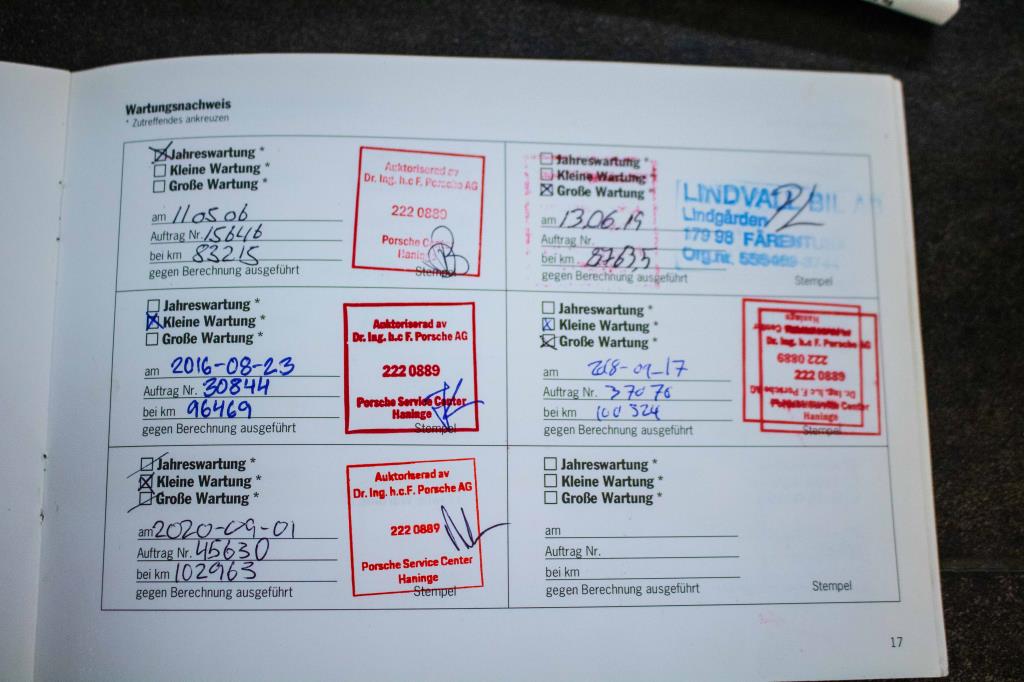 Wartungsnachweis
* Zutreffendes ankreuzen
Jahreswartung *
Kleine Wartung *
Große Wartung *
am 11.05.06
Auftrag Nr. 15646
bei km 83215
gegen Berechnung ausgeführt
Auktoriserad av
Dr. Ing. h.c F. Porsche AG
222 0889
Porsche
Haninge
Stempel
Jahreswartung *
Kleine Wartung *
Große Wartung *
am 13.06.
Auftrag Nr.
bei km
gegen Berechnung ausgeführt
LINDVALL BIL
Lindgården
179 98 FÄRENTUNA
Org.nr.
Stempel
Jahreswartung *
Kleine Wartung *
Große Wartung *
am 2016-08-23
Auftrag Nr. 30844
bei km 96469
gegen Berechnung ausgeführt
Auktoriserad av
Dr. Ing. h.c F. Porsche AG
222 0889
Porsche Service Center
Haninge
Stempel
Jahreswartung *
Kleine Wartung *
Große Wartung *
am
Auftrag Nr. 37070
bei km 100324
gegen Berechnung ausgeführt
Dr. Ing. h.c F. Porsche AG
222 0889
222 0889
Porsche Service Center
Haninge
Stempel
Jahreswartung *
Kleine Wartung *
Große Wartung *
am 2020-09-01
Auftrag Nr. 45630
bei km 102963
gegen Berechnung ausgeführt
Auktoriserad av
Dr. Ing. h.c.F. Porsche AG
222 0889
Porsche Service Center
Haninge
Stempel
Jahreswartung *
Kleine Wartung *
Große Wartung *
am
Auftrag Nr.
bei km
gegen Berechnung ausgeführt
Stempel
17